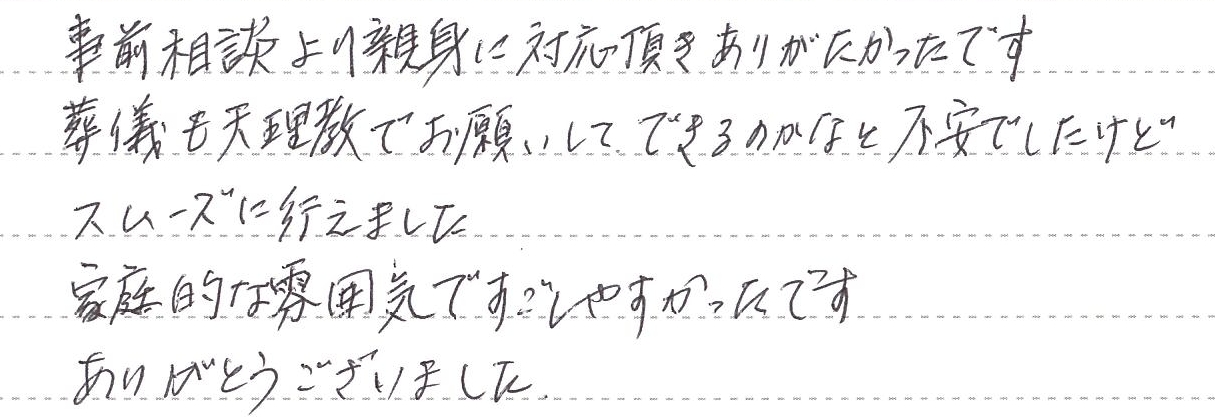 事前相談より親身に対応頂きありがたかったです
葬儀も天理教でお願いしてできるのかなと不安でしたけど
スムーズに行えました
家庭的な雰囲気ですごしやすかったです
ありがとうございました.